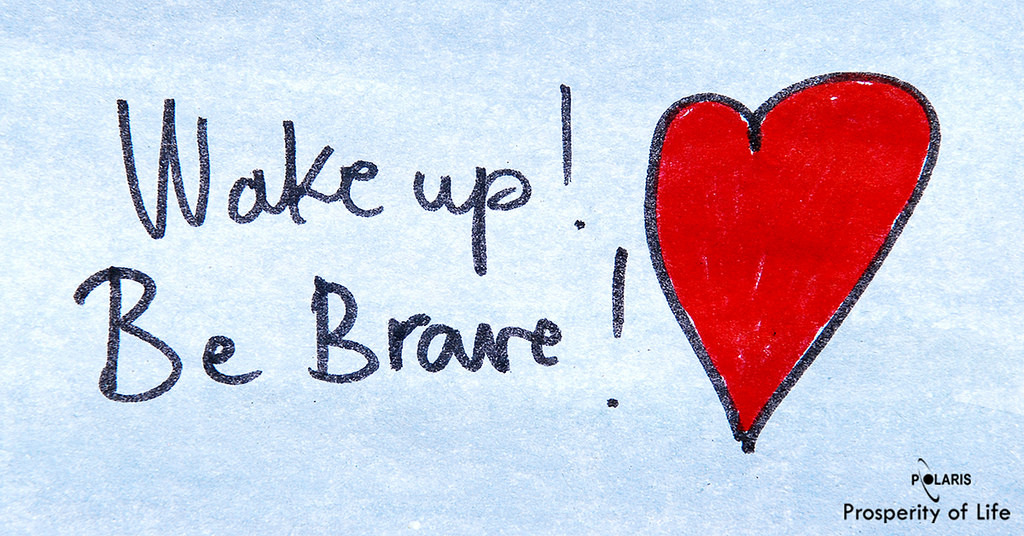 Wake up!
Be Brave!
POLARIS
Prosperity of Life